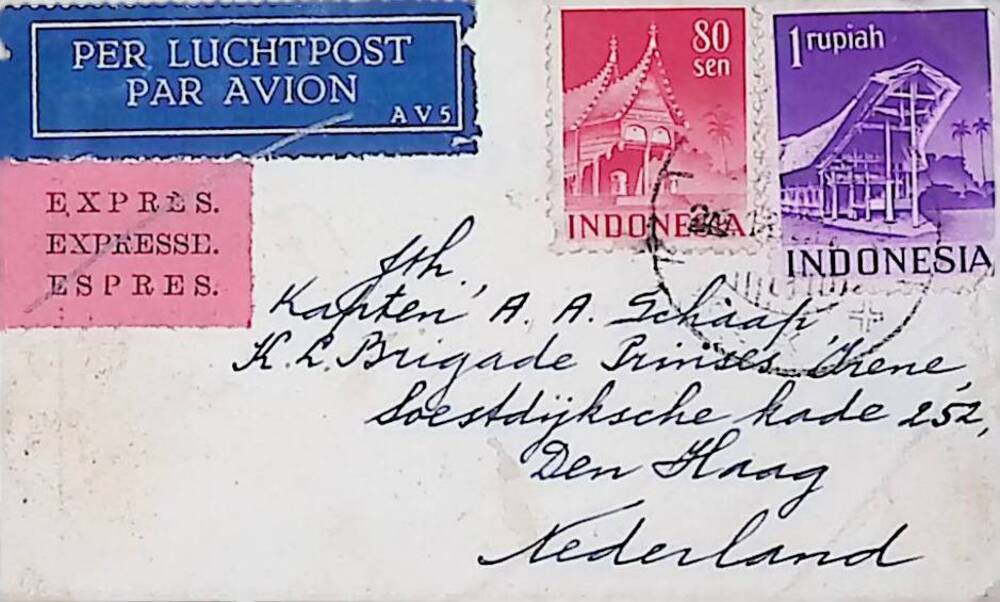 PER LUCHTPOST
PAR AVION
AV5
EXPRÈS.
EXPRESSE.
ESPRES.
80
sen
INDONESIA
1 rupiah
INDONESIA
fth.
Kapten A. A. Schaap
K. L. Brigade Prinses Irene,
Soestdijksche kade 252,
Den Haag
Nederland